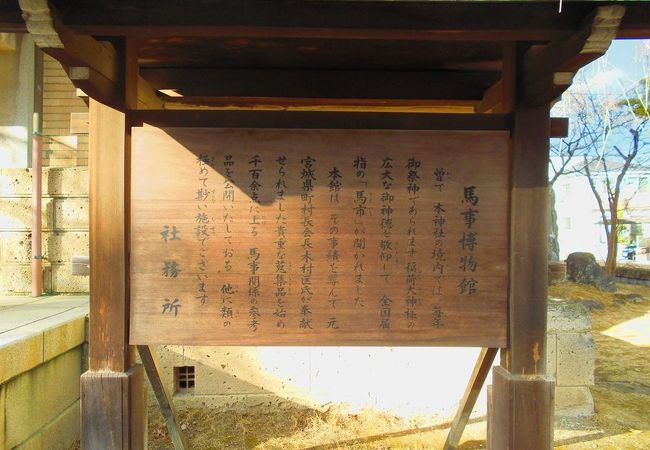 馬事博物館
曽て 本神社の境内では 毎年
御祭神であられます稲荷大神様の
広大な御神徳を敬仰して 全国屈
指の「馬市」が開かれました
本館は その事績を尊んで 元
宮城県町村長会長木村匡氏が奉献
せられました貴重な蒐集品を始め
千百余点に上る 馬事関係の参考
品を公開いたしておる 他に類の
極めて尠い施設でございます
社務所